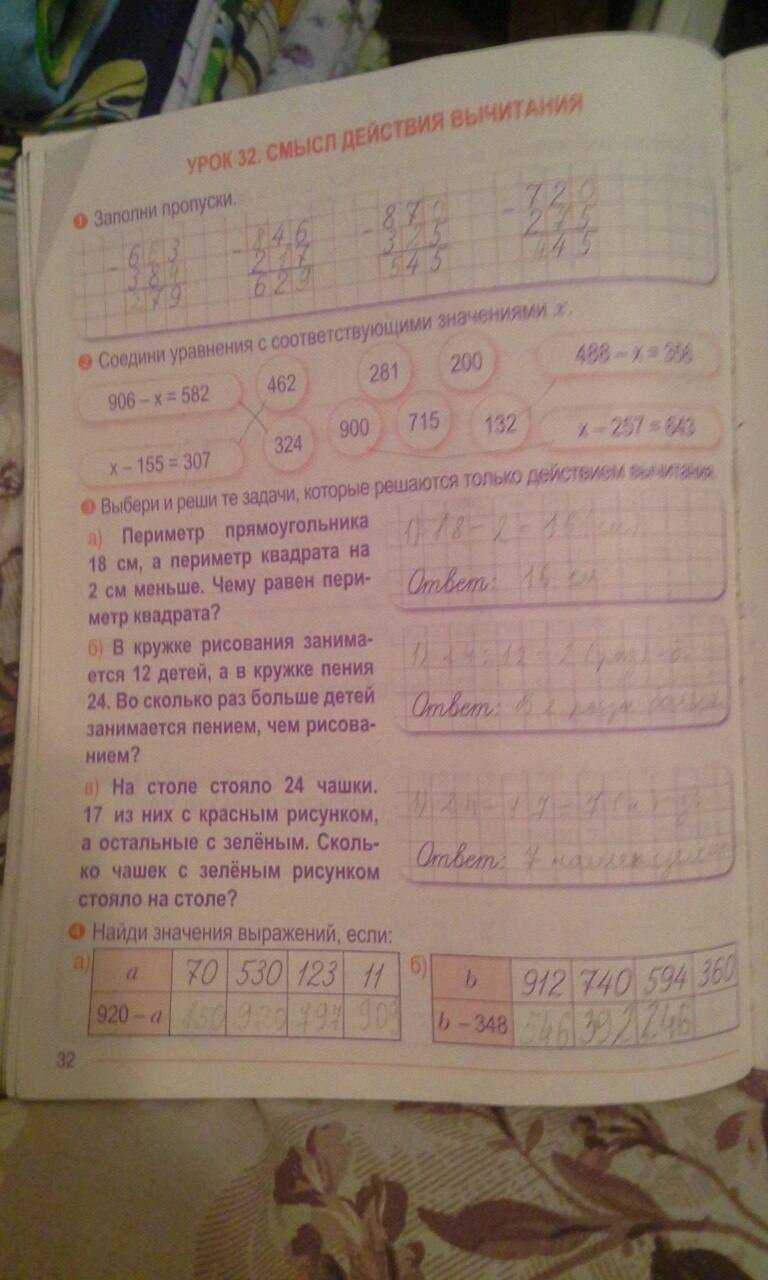 УРОК 32. СМЫСЛ ДЕЙСТВИЯ ВЫЧИТАНИЯ
1 Заполни пропуски.
- 663 - 846 - 870 - 720
384 217 325 275
279 629 545 445
2 Соедини уравнения с соответствующими значениями x.
906 – x = 582 462 281 200 488 – x = 356
x – 155 = 307 324 900 715 132 x – 257 = 643
3 Выбери и реши те задачи, которые решаются только действием вычитания.
а) Периметр прямоугольника
18 см, а периметр квадрата на
2 см меньше. Чему равен пери-
метр квадрата?
1) 18 - 2 = 16 (см)
Ответ: 16 см
б) В кружке рисования занима-
ется 12 детей, а в кружке пения
24. Во сколько раз больше детей
занимается пением, чем рисова-
нием?
1) 24 : 12 = 2 (раз) - б.
Ответ: В 2 раза больше
в) На столе стояло 24 чашки.
17 из них с красным рисунком,
а остальные с зелёным. Сколь-
ко чашек с зелёным рисунком
стояло на столе?
1) 24 - 17 = 7
Ответ: 7 чашек
4 Найди значения выражений, если:
а) a 70 530 123 11
920 – a 150 920 797 909
б) b 912 740 594 360
b – 348 546 392 246
32